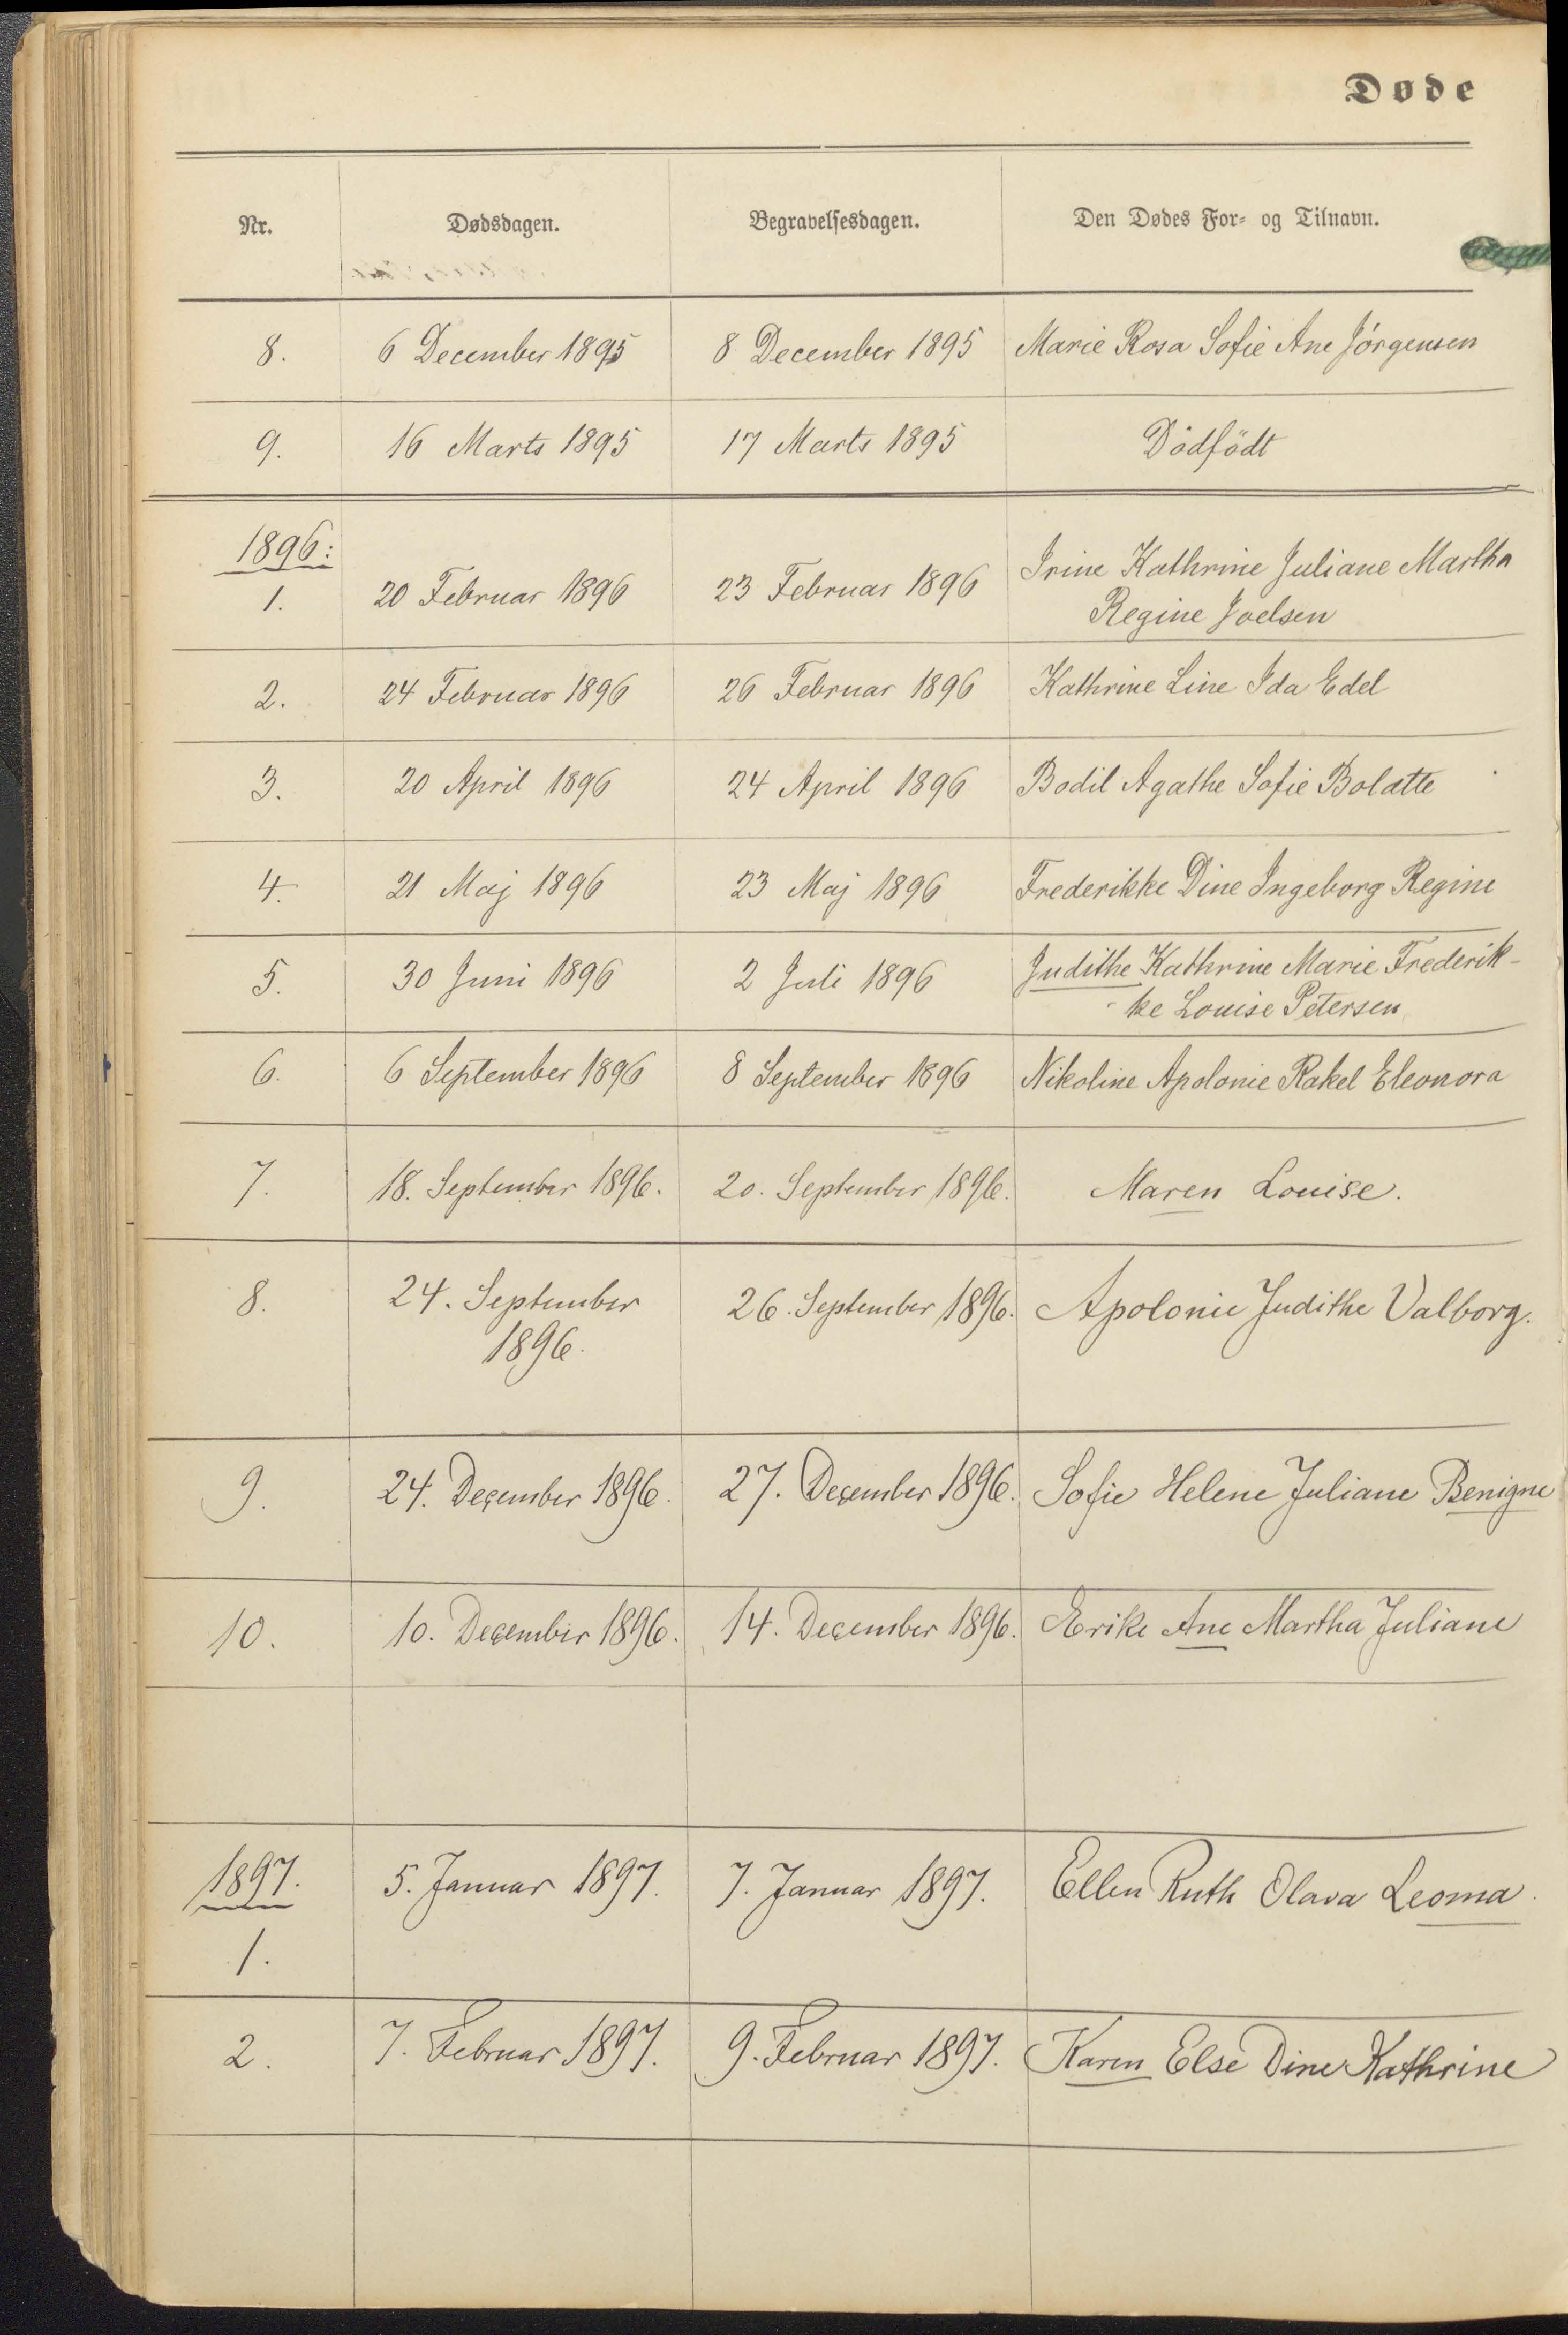 Døde
Nr. Dødsdagen. Begravelsesdagen. Den Dødes For- og Tilnavn.
8. 6 December 1895 8 December 1895 Marie Rosa Sofie Ane Jörgensen
9. 16 Marts 1895 17 Marts 1895 Dödfödt
1896:
1. 20 Februar 1896 23 Februar 1896 Irine Kathrine Juliane Martha
Regine Joelsen
2. 24 Februar 1896 26 Februar 1896 Kathrine Line Ida Edel
3. 20 April 1896 24 April 1896 Bodil Agathe Sofie Bolatte
4. 21 Maj 1896 23 Maj 1896 Frederikke Dine Ingeborg Regine
5. 30 Juni 1896 2 Juli 1896 Judithe Kathrine Marie Frederik-
ke Louise Petersen
6. 6 September 1896 8 September 1896 Nikoline Apolonie Rakel Eleonora
7. 18. September 1896. 20. September 1896. Maren Louise.
8. 24. September 26. September 1896. Apolonie Judithe Valborg.
1896.
9. 24. December 1896. 27. December 1896. Sofie Helene Juliane Benigne
10. 10. December 1896. 14. December 1896. Erike Ane Martha Juliane
1897. 5. Januar 1897. 7. Januar 1897. Ellen Ruth Olava Leoma.
1.
2. 7. Februar 1897. 9. Februar 1897. Karen Else Dine Kathrine